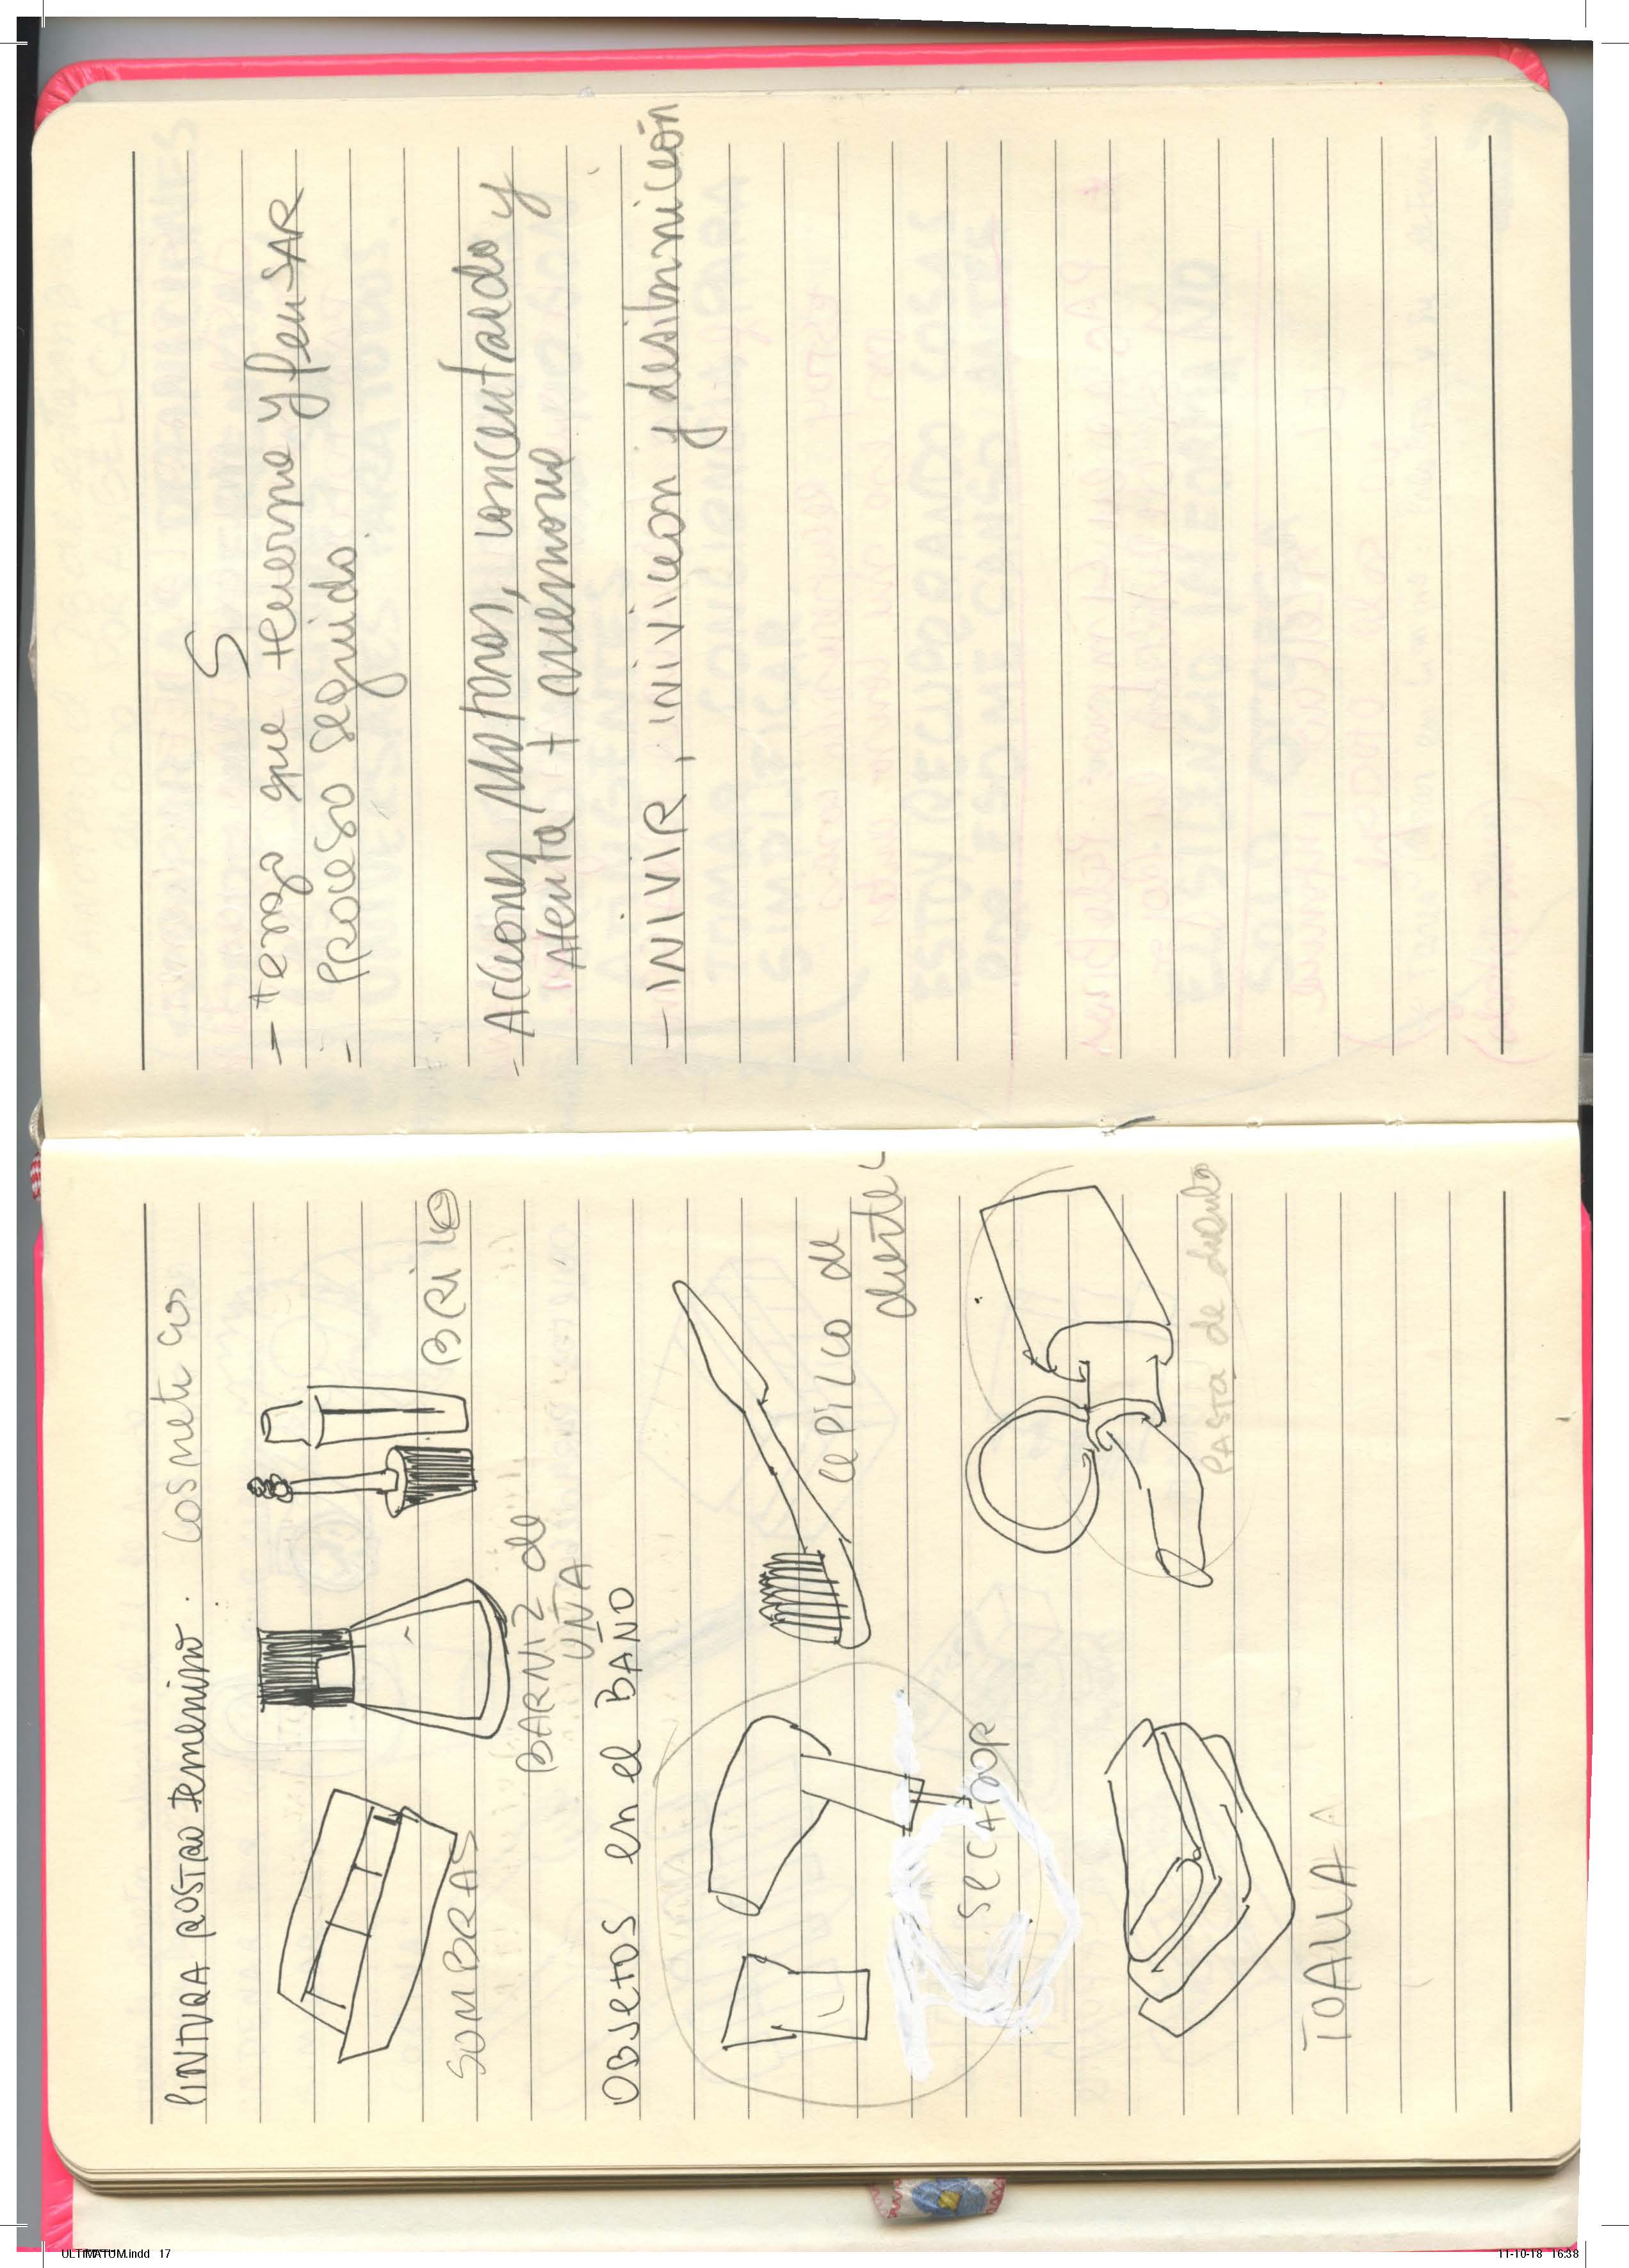 PINTURA ROSTRO femenino. Cosmeticos
BRILLO
BARNIZ de
UÑA
SOMBRAS
OBJETOS en el BAÑO
CEPILLO de
diente
SECADOR
PASTA de diente
TOALLA
S
- tengo que tenerme y PenSAR
- PROCESO Seguido.
- Acciones motoras, concentrado y
Atenta +
- INIVIR, INIVICION y desilominición
ULTIMATUM.indd 17
11-10-18 16:38